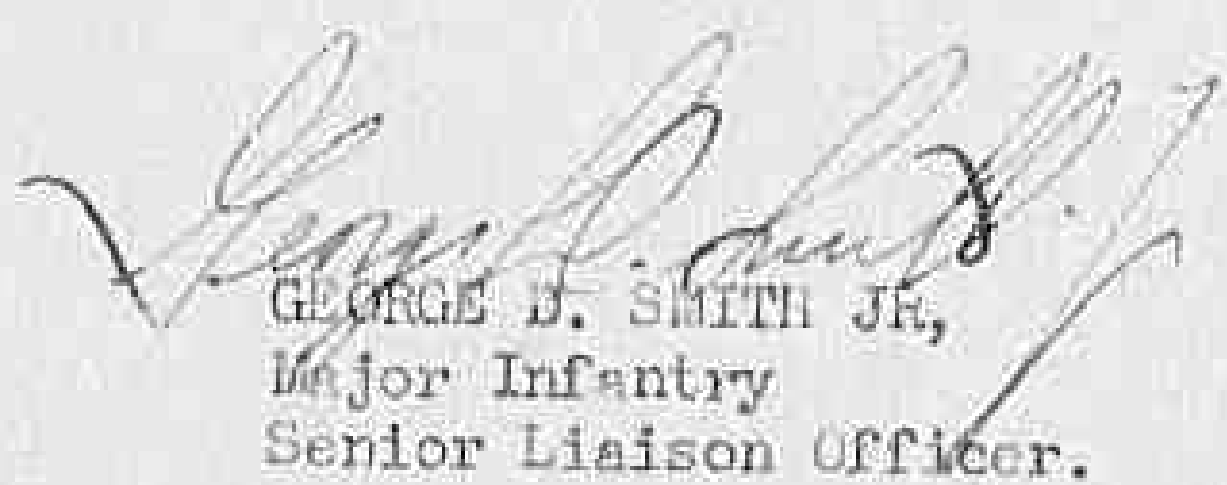 George D. Smith Jr
GEORGE D. SMITH JR,
Major Infantry
Senior Liaison Officer.